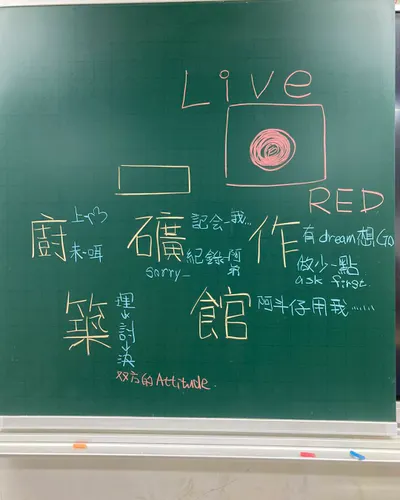 Live
RED
廚 上心
未·咡
礦 記会_我...
紀錄_阿弟
sorry_
作 有dream想Go
做少一點
ask first.
築 埋→討→決
双方的Attitude.
館 阿斗仔用我......